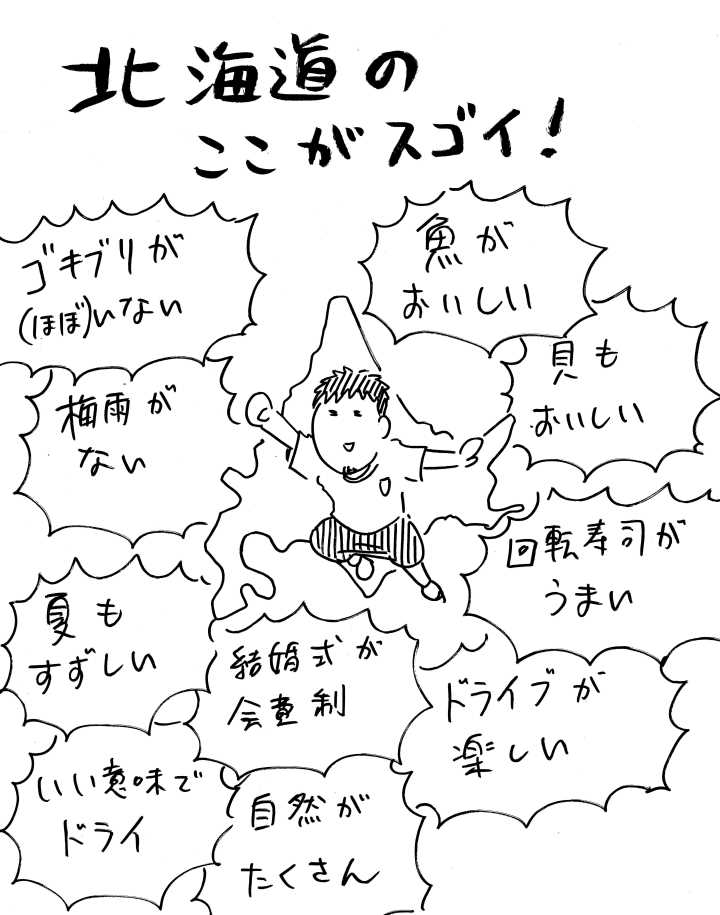 北海道の
ここがスゴイ！
ゴキブリが
(ほぼ)いない
魚が
おいしい
貝も
おいしい
梅雨が
ない
回転寿司が
うまい
夏も
すずしい
結婚式が
会費制
ドライブが
楽しい
いい意味で
ドライ
自然が
たくさん